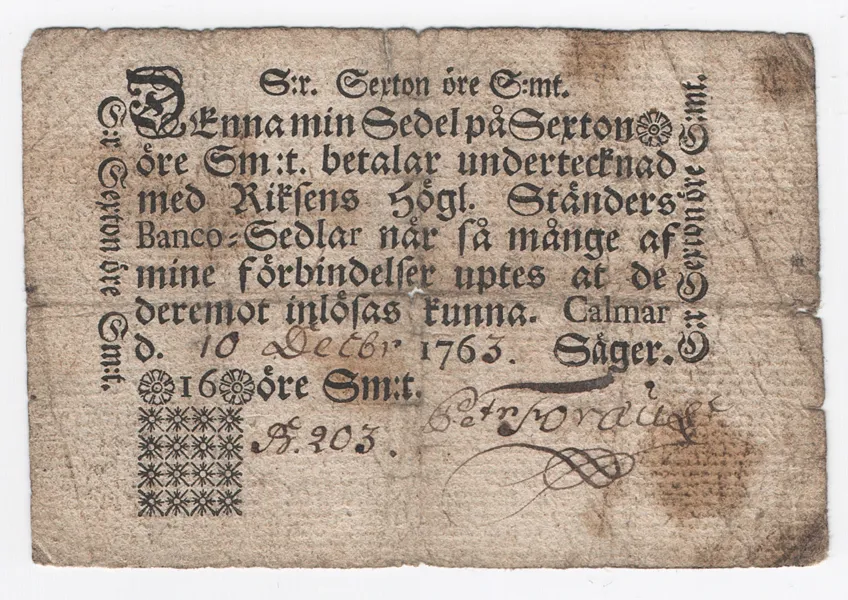 S:r. Sexton öre S:mt.
DEnna min Sedel på Sexton
öre Sm:t. betalar undertecknad
med Riksens Högl. Ständers
Banco-Sedlar når så månge af
mine förbindelser uptes at de
deremot inlösas kunna. Calmar
d. 10 Decbr 1763. Säger.
16 öre Sm:t.
N. 203.
Petr
S:r Sexton öre Sm:t.
S:r Sexton öre S:mt.